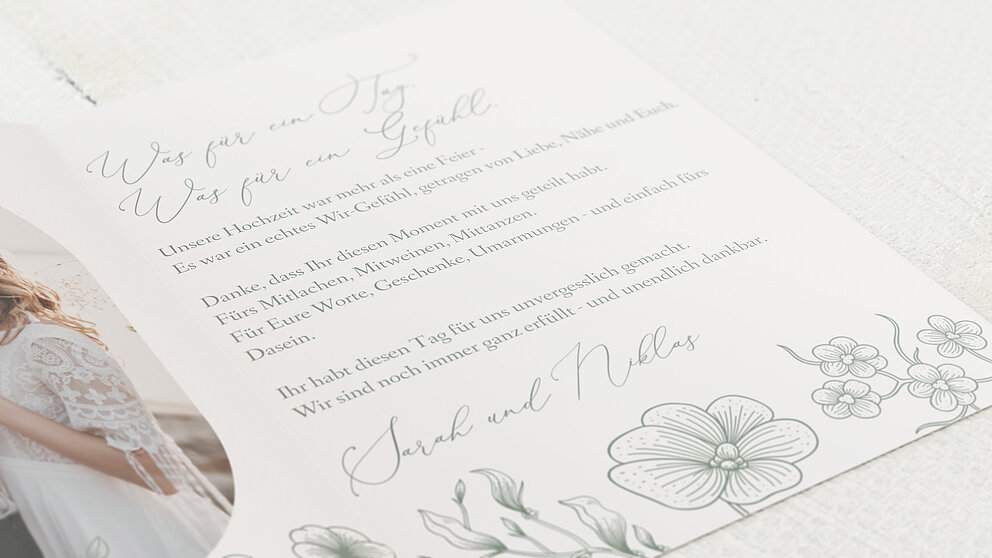 Was für ein Tag.
Was für ein Gefühl.
Unsere Hochzeit war mehr als eine Feier -
Es war ein echtes Wir-Gefühl, getragen von Liebe, Nähe und Euch.
Danke, dass Ihr diesen Moment mit uns geteilt habt.
Fürs Mitlachen, Mitweinen, Mittanzen.
Für Eure Worte, Geschenke, Umarmungen - und einfach fürs
Dasein.
Ihr habt diesen Tag für uns unvergesslich gemacht.
Wir sind noch immer ganz erfüllt - und unendlich dankbar.
Sarah und Niklas